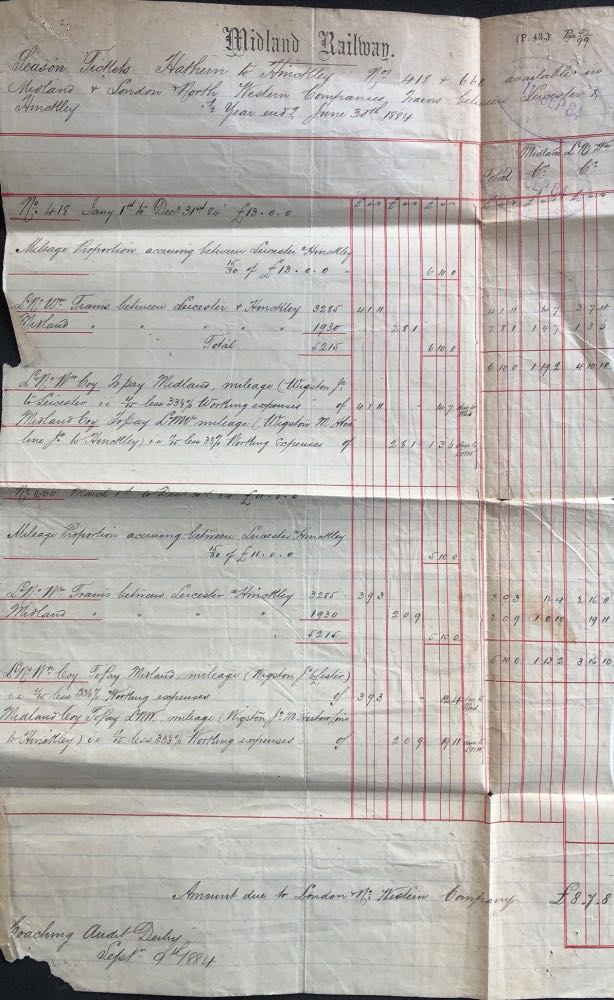 Midland Railway.
(P. 43.)
Season Tickets Hathern to Hinckley Nos. 418 & 660 available in
Midland & London & North Western Companies Trains between Leicester &
Hinckley ½ Year endg June 30th 1884
SEP 84
Midland L & N Wn
Total Co. Co.
£ s d £ s d £ s d £ s d £ s d £ s d
No. 418 Jany 1st to Decr 31st 84 £13.0.0
Mileage Proportion accruing between Leicester & Hinckley
15/30 of £13.0.0 6 10 0
L & No. Wn Trains between Leicester & Hinckley 3285 4 1 11 4 1 11 14 7 3 7 4
Midland " " " " 1930 2 8 1 2 8 1 1 4 7 1 3 6
Total 5215 6 10 0 6 10 0 1 19 2 4 10 10
L & No. Wn Coy To pay Midland, mileage (Wigston Jn.
to Leicester i.e. 4/15 less 33⅓% Working expenses of 4 1 11 - 14 7 due to Mid
Midland Coy To pay L&NW mileage (Wigston
line Jn. to Hinckley) i.e. less 33⅓% Working Expenses of 2 8 1 - 1 3 6 due to LNW
No. 660 March 1st to £11.0.0
Mileage Proportion accruing between Leicester & Hinckley
15/30 of £11.0.0 5 10 0
L & No. Wn Trains between Leicester & Hinckley 3285 3 9 3 12 4 2 16 11
Midland " " " " 1930 2 0 9 2 0 9 1 0 10 19 11
5215 5 10 0 5 10 0 1 13 2 3 16 10
L & No. Wn Coy To pay Midland, mileage (Wigston Jn. to Leicester)
i.e. 4/15 less 33⅓% Working expenses of 3 9 3 - 12 4 due to Mid
Midland Coy To pay L&NW mileage (Wigston
to Hinckley) i.e. less 33⅓% Working expenses of 2 0 9 - 19 11 due to LNW
Amount due to London & No. Western Company £8.7.8
Coaching Audit Derby
Septr 9th 1884